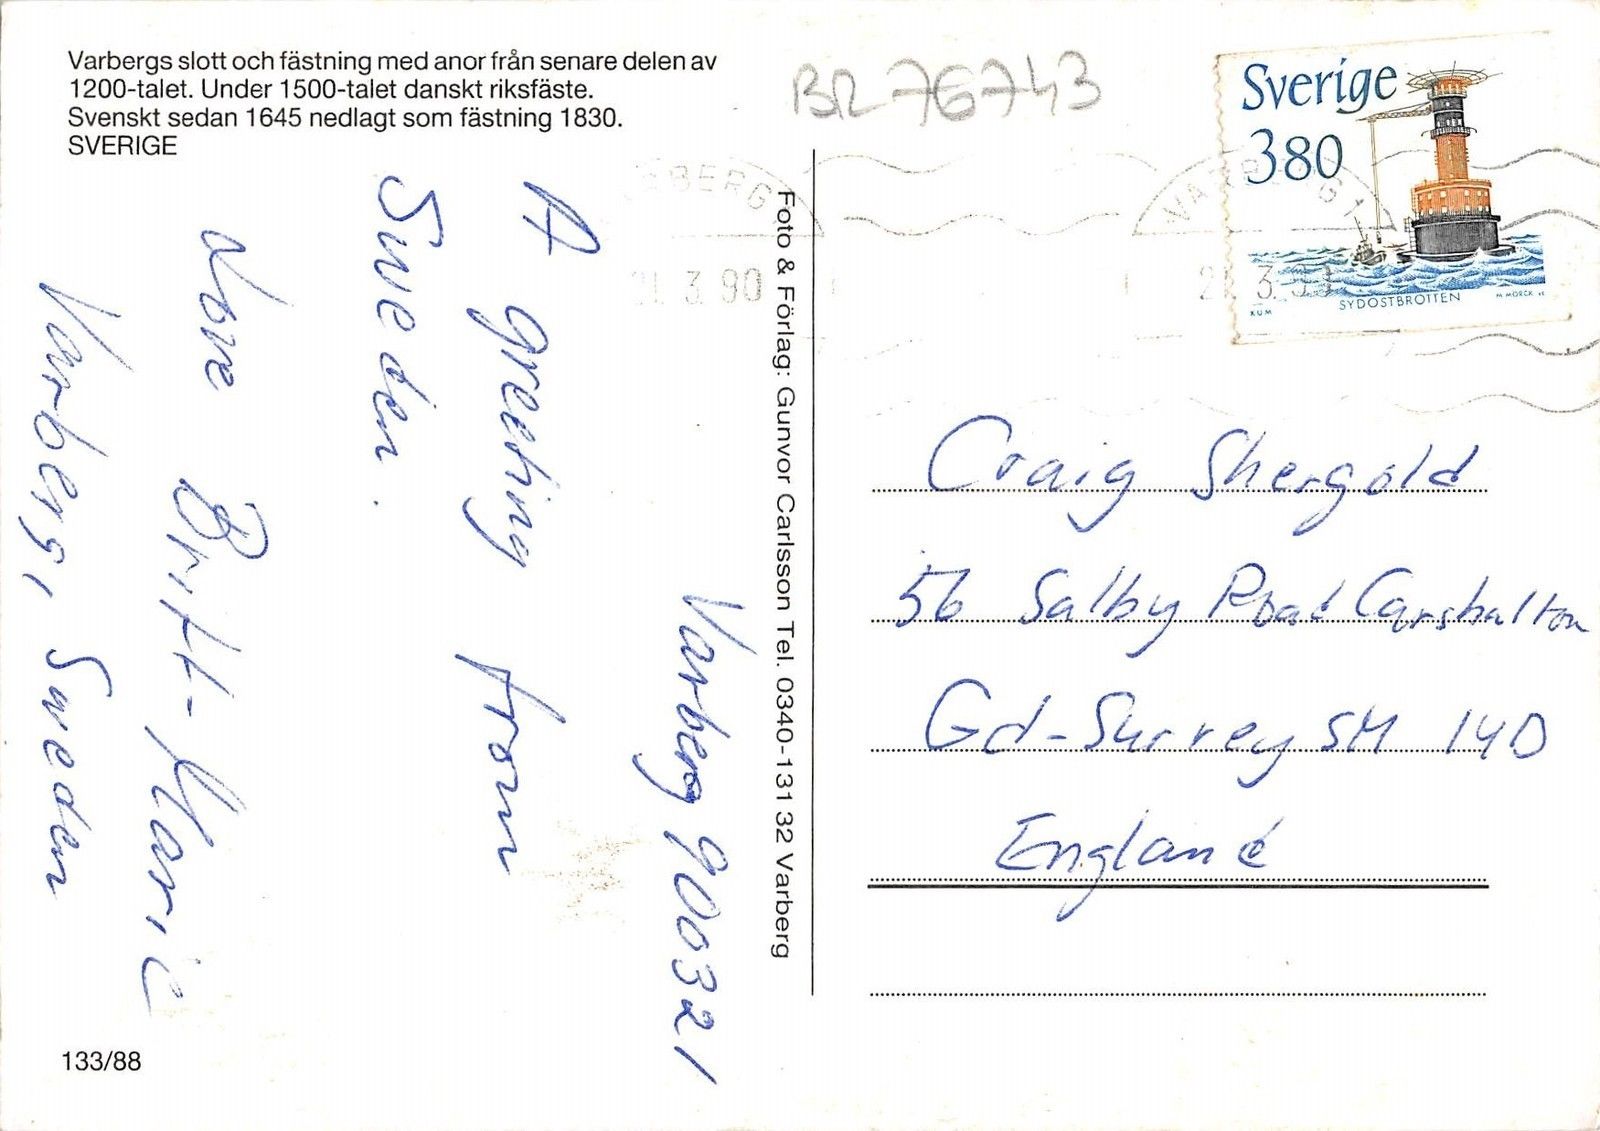 Varbergs slott och fästning med anor från senare delen av
1200-talet. Under 1500-talet danskt riksfäste.
Svenskt sedan 1645 nedlagt som fästning 1830.
SVERIGE
BR76743
Sverige
380
SYDOSTBROTTEN
M MÖRCK sc
KUM
VARBERG 1
21. 3. 90
Varberg 900321
A greeting from
Sweden.
Love Britt-Marie
Varberg, Sweden
Foto & Förlag: Gunvor Carlsson Tel. 0340-131 32 Varberg
Craig Shergold
56 Salby Road Carshalton
Gd-Surrey SM 14D
England
133/88